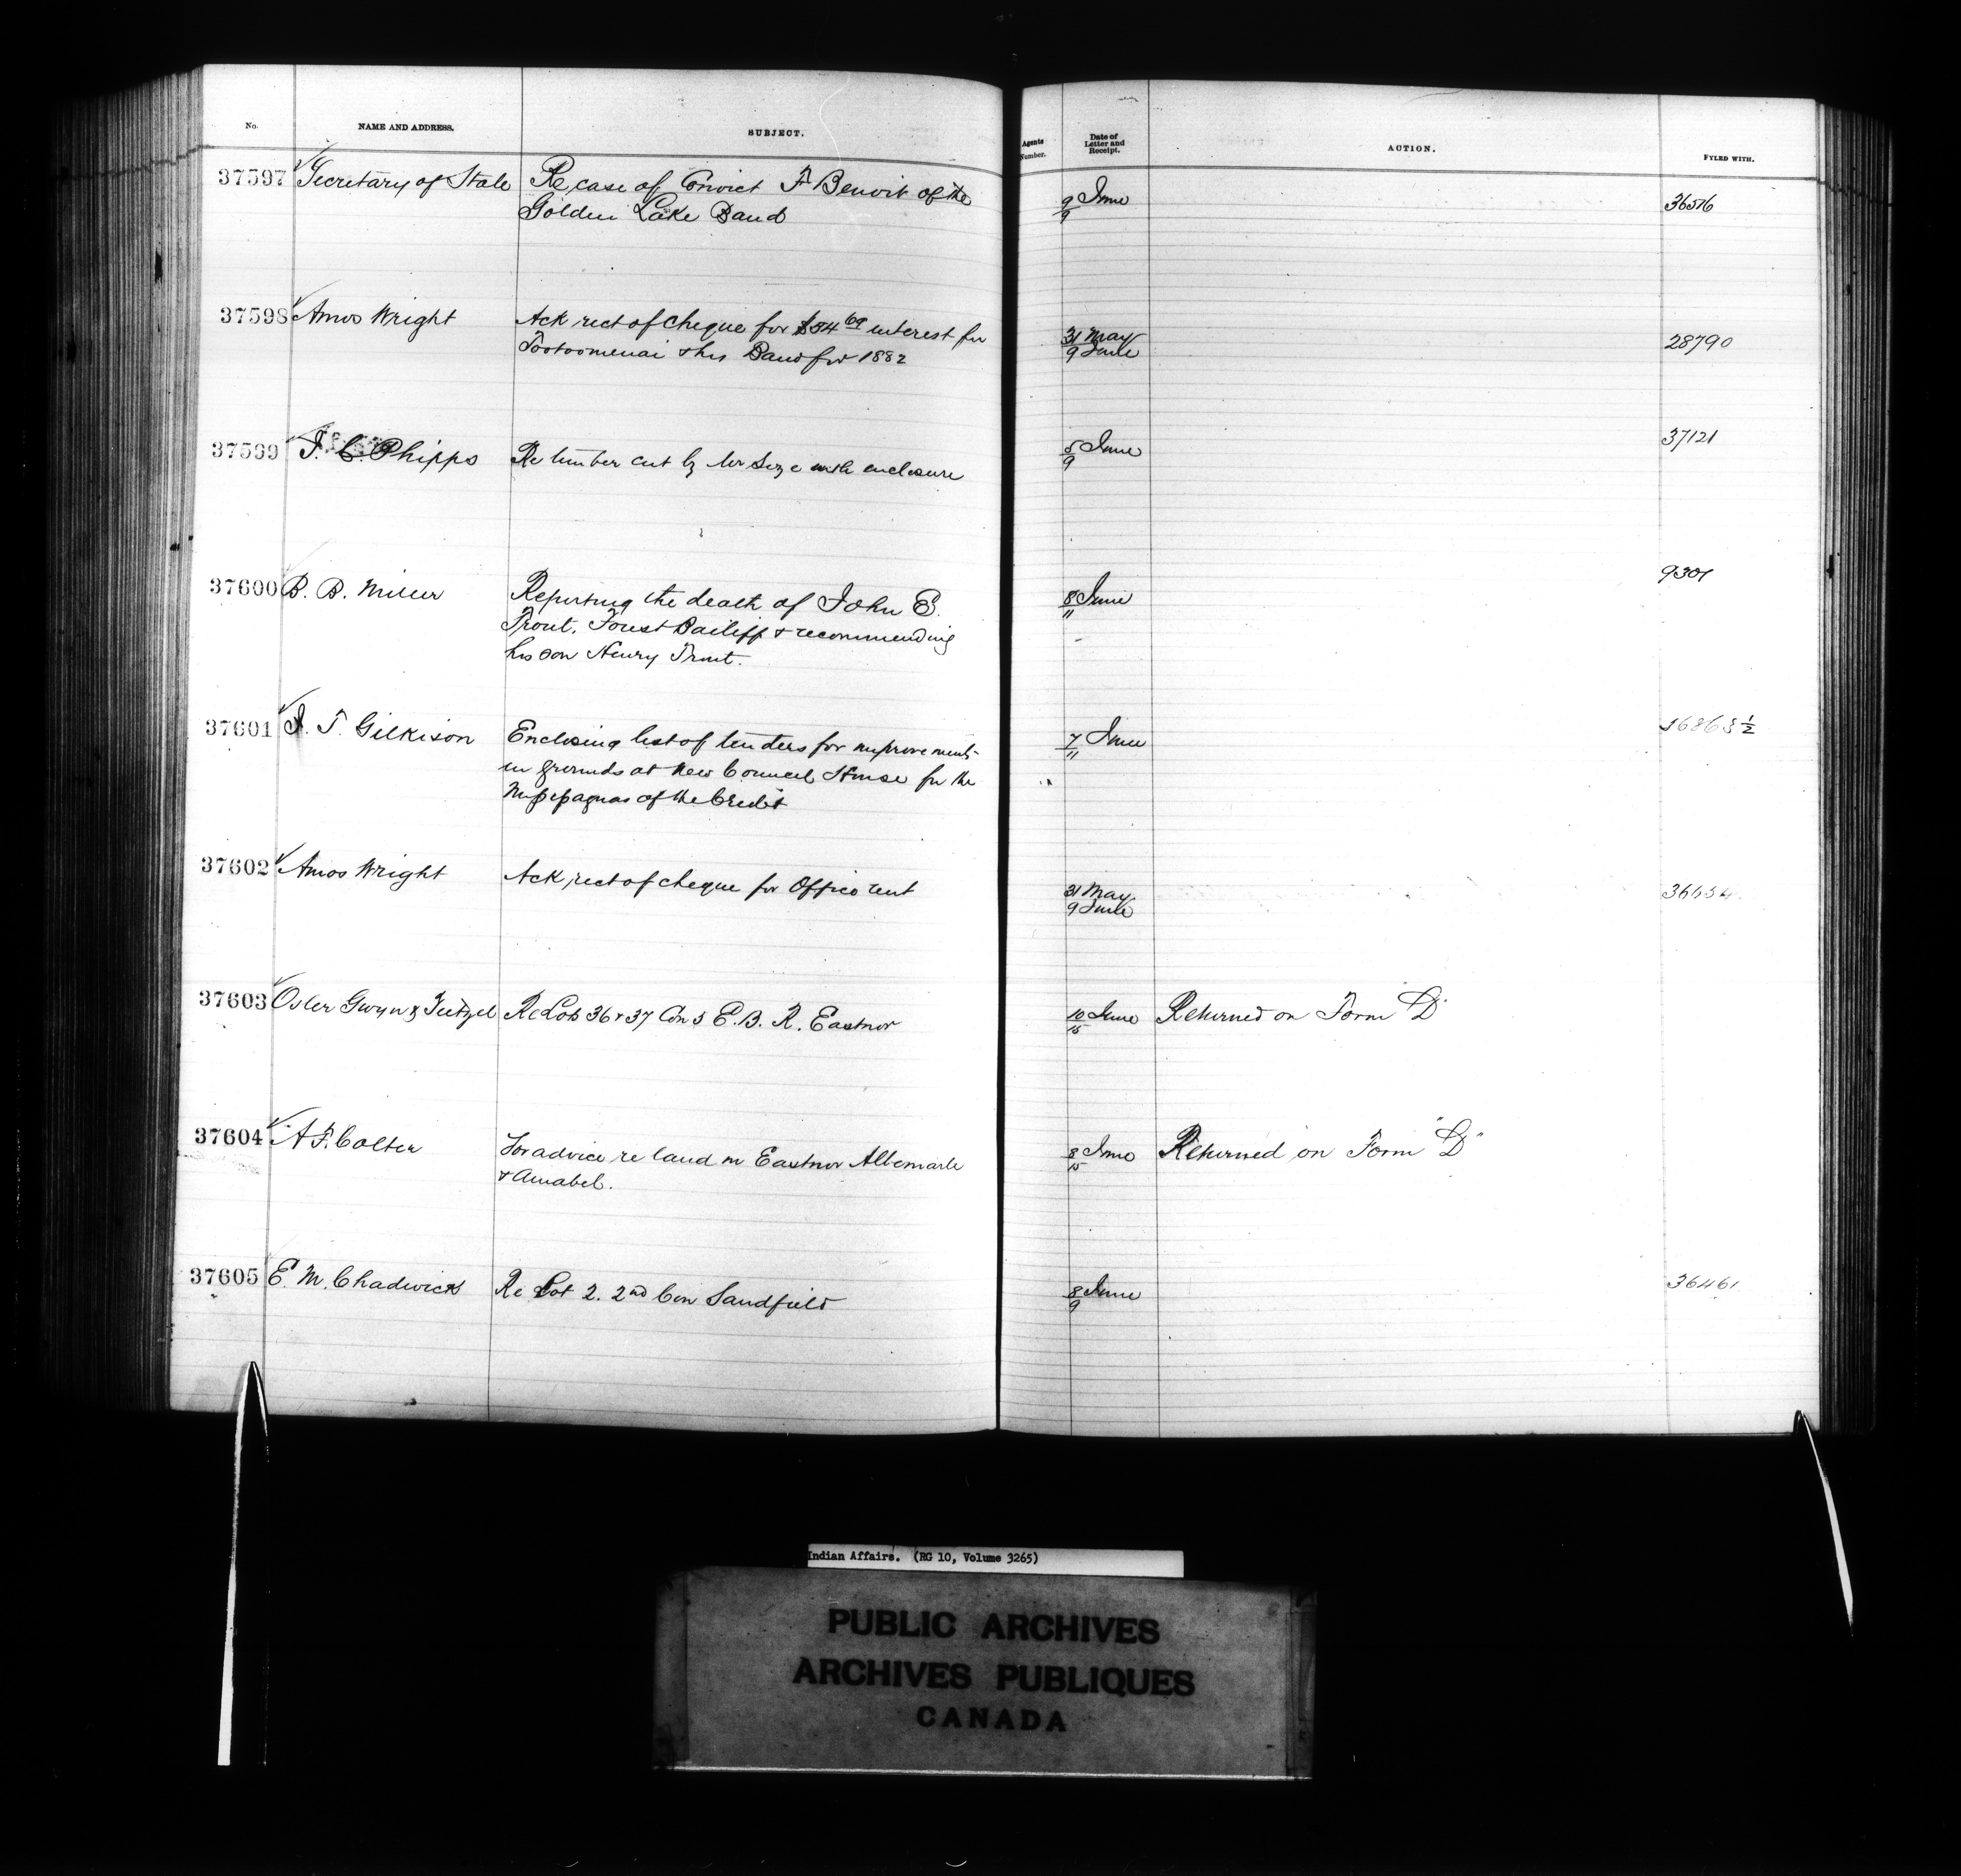 No. NAME AND ADDRESS. SUBJECT. Agents Number. Date of Letter and Receipt. ACTION. FYLED WITH.
37597 Secretary of State Re case of Convict F Benoit of the 9/9 June 36516
Golden Lake Band
37598 Amos Wright Ack rect of cheque for $84 69 interest for 31 May 28790
Tootoomenai & his Band for 1882 9 June
37599 J. C. Phipps Re timber cut by with enclosure 5/9 June 37121
37600 B. B. Miller Reporting the death of John E. 8/11 June 9301
Trout, Forest Bailiff & recommending
his son Henry Trout.
37601 J. T. Gilkison Enclosing list of tenders for improvements 7/11 June
in grounds at New Council House for the
Missisaguas of the Credit
37602 Amos Wright Ack rect of cheque for Office rent 31 May
9 June
37603 Osler Gwyn & Teetzel Re Lots 36 & 37 Con 5 E. B. R. Eastnor 10/15 June Returned on Form "D"
37604 A F. Colter For advice re land in Eastnor Albemarle 8/15 June Returned on Form "D"
& Amabel.
37605 E. M. Chadwick Re Lot 2. 2nd Con Sandfield 8/9 June 36461
Indian Affairs. (RG 10, Volume 3265)
PUBLIC ARCHIVES
ARCHIVES PUBLIQUES
CANADA